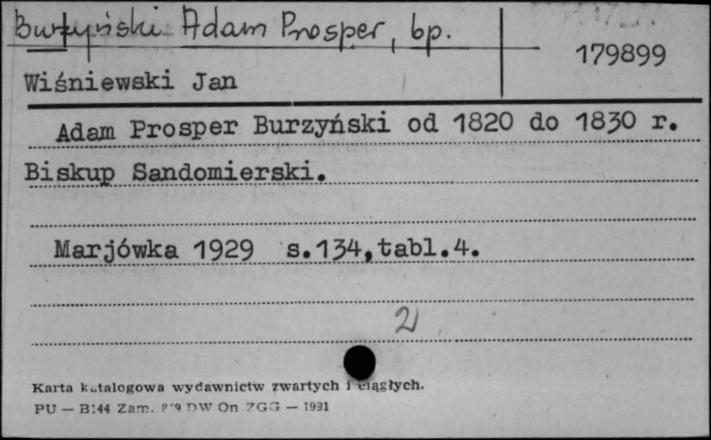 Burzyński Adam Prosper, bp.
179899
Wiśniewski Jan
Adam Prosper Burzyński od 1820 do 1830 r.
Biskup Sandomierski.
Marjówka 1929 s.134,tabl.4.
2
Karta katalogowa wydawnictw zwartych i ciągłych.
PU — B144 Zam. DW On ZGG — 1991